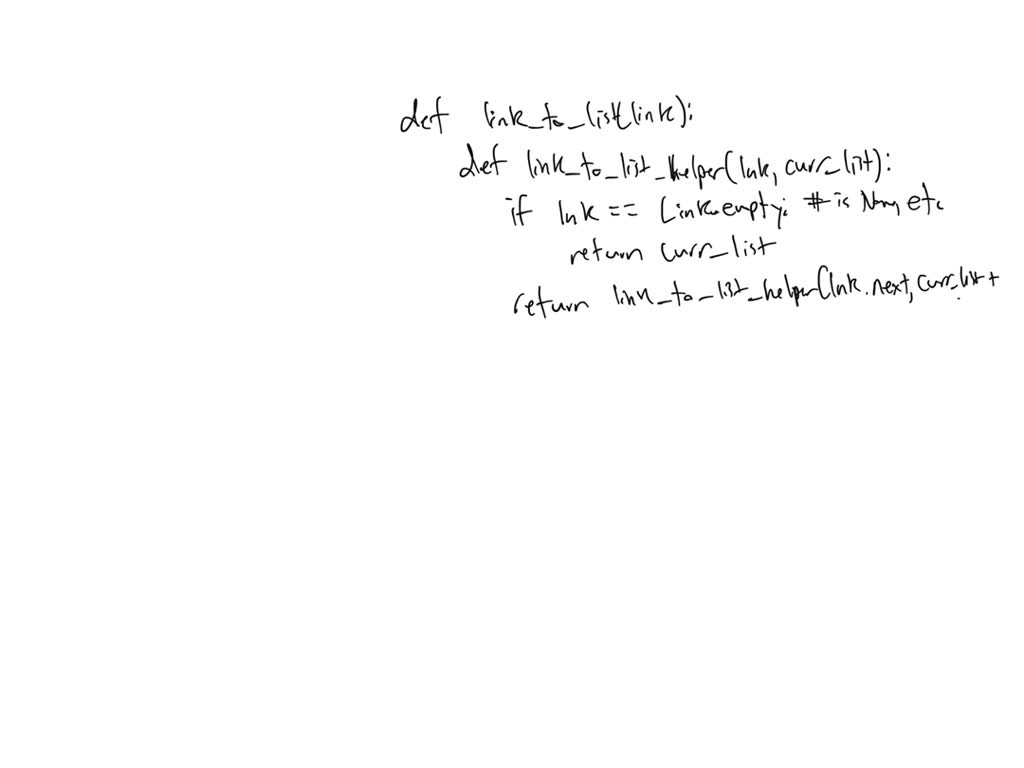 def link_to_list(link):
def link_to_list_helper(lnk, curr_list):
if lnk == Link.empty: # is None, etc
return curr_list
return link_to_list_helper(lnk.next, curr_list +